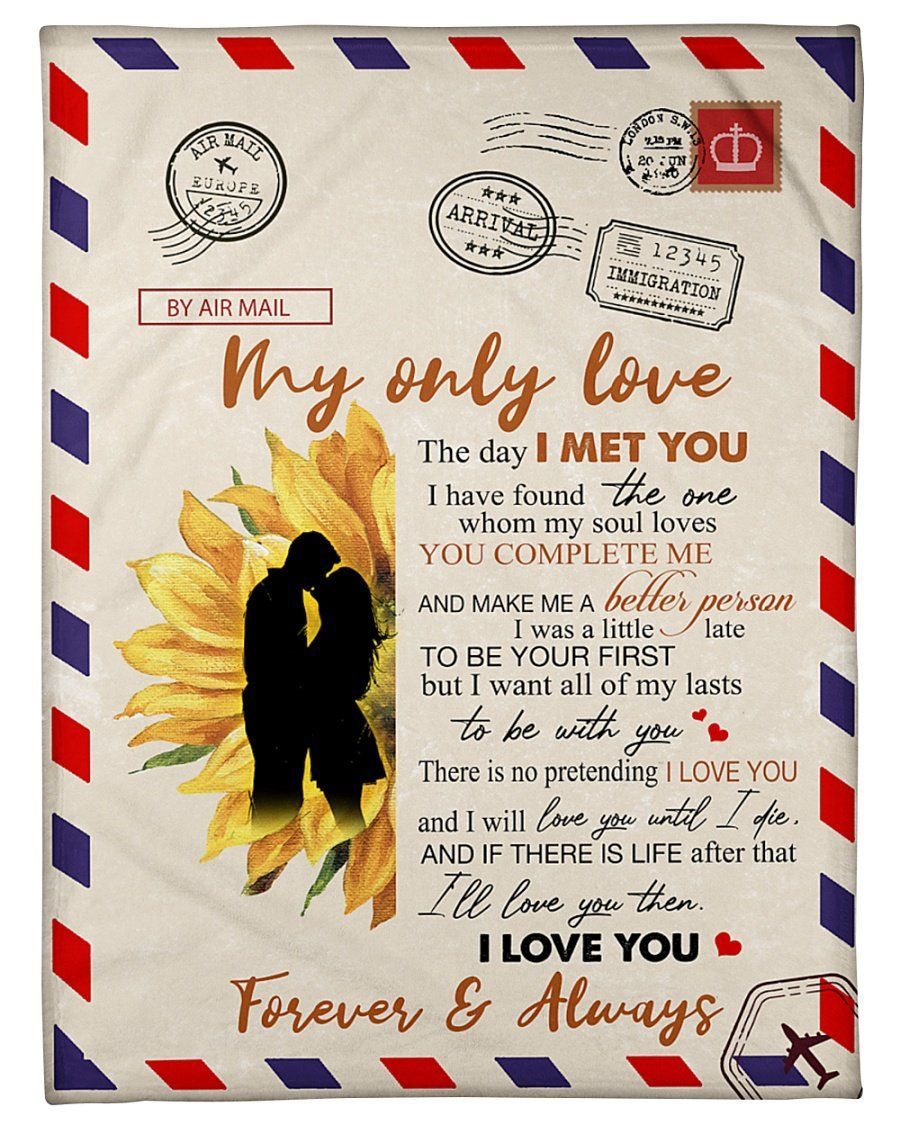 LONDON S.W.13
7.15 PM
20 JUN
AIR MAIL
EUROPE
12345
ARRIVAL
12345
IMMIGRATION
BY AIR MAIL
My only love
The day I MET YOU
I have found the one
whom my soul loves
YOU COMPLETE ME
AND MAKE ME A better person
I was a little late
TO BE YOUR FIRST
but I want all of my lasts
to be with you
There is no pretending I LOVE YOU
and I will love you until I die.
AND IF THERE IS LIFE after that
I'll love you then.
I LOVE YOU
Forever & Always